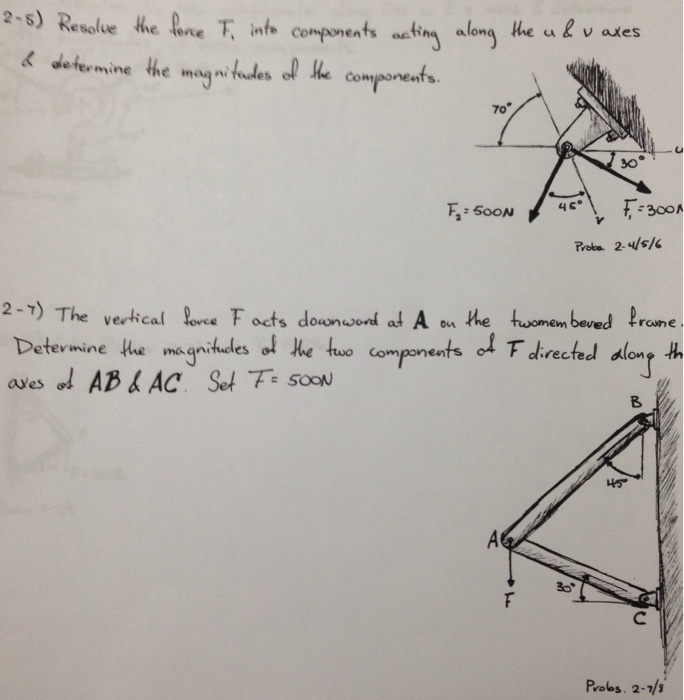 2-5) Resolve the force F₁ into components acting along the u & v axes
& determine the magnitudes of the components.
70°
u
30°
45°
v
F₂ = 500N
F₁ = 300N
Probs. 2-4/5/6
2-7) The vertical force F acts downward at A on the twomembered frame.
Determine the magnitudes of the two components of F directed along th
axes of AB & AC. Set F = 500N
B
45°
A
F
30°
C
Probs. 2-7/8